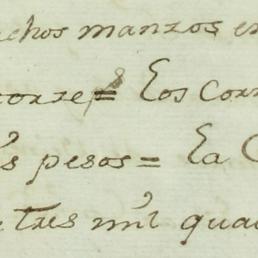 chos manzos en
corre = Los Corr
s pesos = La C
tres mil qua